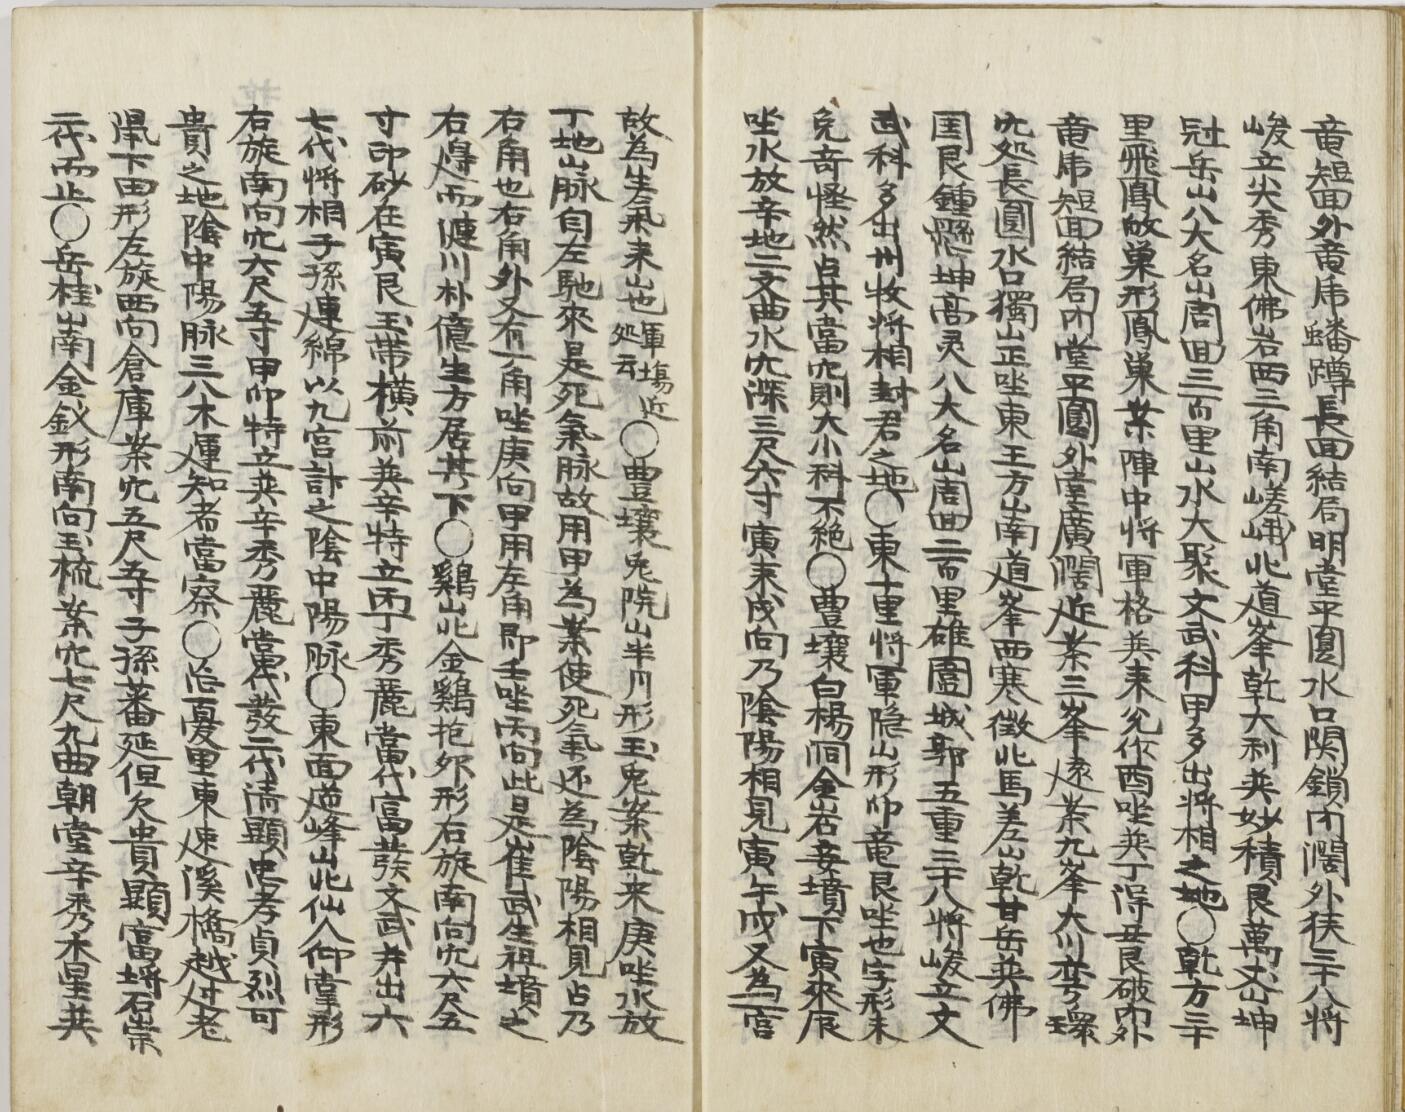 竜短面外竜乕蟠蹲長面結局明堂平圓水口関鎖内濶外狹三十八將
峻立尖秀東佛岩西三角南嵯峨北道峯乾大利巽妙積艮萬丈坤
冠岳山八大名山周回三百里山水大聚文武科甲多出將相之地○乾方三十
里飛鳳故巣形鳳巣案陣中將軍格巽来兌作酉坐巽丁淂丑艮破内外
竜乕短面結局内堂平圓外堂廣濶近案三峯遠案九峯大川彎環
穴処長圓水口獨山正坐東王方山南道峯西寒徵北馬差山乾甘岳巽佛
国艮鍾懸坤髙灵八大名山周回二百里雄圖城郭五重三十八將峻立文
武科多出州牧將相封君之地○東十里將軍隐山形卯竜艮坐也字形未
免奇怪然占其當穴則大小科不絶○豊壤白楊洞金岩妾墳下寅來辰
坐水放辛地二文曲水穴深三尺六寸寅未戌向乃陰陽相見寅午戌又為一宮
故為生氣来山也 軍塲近処云○豊壤兎院山半月形玉兎案乾来庚坐水放
丁地山脉自左馳來是死氣脉故用甲為案使死氣还為陰陽相見占乃
右角也右角外又有一角坐庚向甲用左角即壬坐丙向此是崔武生祖墳之
右淂而漣川朴億生方居其下○鷄山北金鷄抱卵形右旋南向穴六尺五
寸印砂在寅艮玉帶横前巽辛特立丙丁秀麗當代富發文武并出六
七代將相子孫連綿以九宮計之陰中陽脉○東面道峰山北仙人仰掌形
右旋南向穴六尺五寸甲卯特立巽辛秀麗當代發二代清顯忠孝貞烈可
貴之地陰中陽脉三八木運知者當察○治夏里東速溪橋越邊老
鼠下田形左旋西向倉庫案穴五尺五寸子孫蕃延但欠貴顯富埒石崇
二代而止○岳桂山南金釵形南向玉梳案穴七尺九曲朝堂辛秀木星共